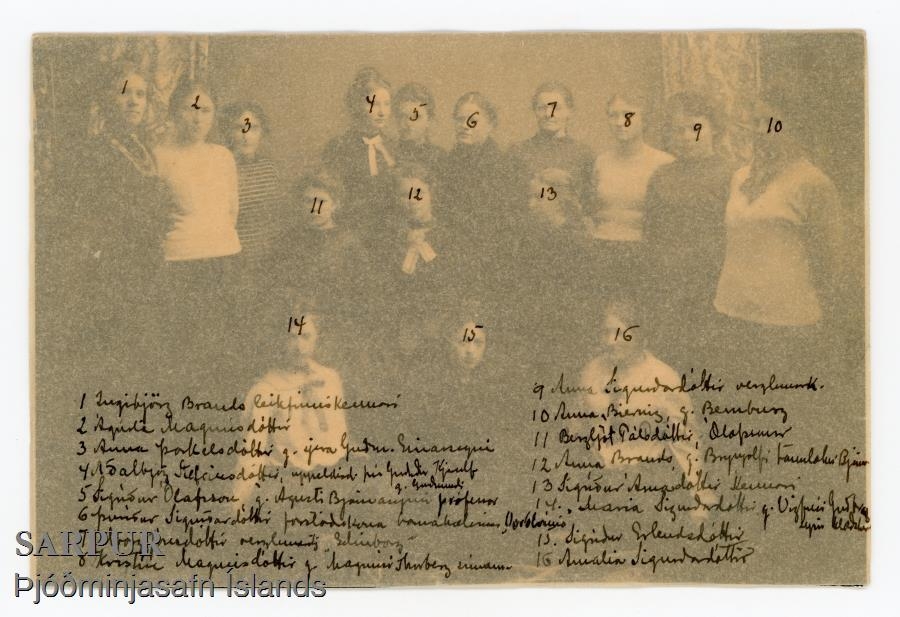 1
2
3
4
5
6
7
8
9
10
11
12
13
14
15
16
1 Ingibjörg Brands leikfimiskennari
2 Ágústa Magnúsdóttir
3 Anna Þorkelsdóttir g. Guðm. Einarssyni
4 Aðalbjörg
5 Sigríður Ólafsson g. Ágústi Bjarnasyni prófessor
6 Þuríður Sigurðardóttir forstöðukona barnahælisins
7
8 Kristín Magnúsdóttir g. Magnúsi
9 Anna Sigurdardóttir verzlunark.
10 Anna g. Bemburg
11 Bergljót Pálsdóttir, Ólafssonar
12 Anna Brands, g. Brynjólfi
13 Sigríður Árnadóttir kennari
14. María Sigurdardóttir g. Vigfúsi
15. Sigridur Erlendsdóttir
16 Amalía Sigurdardóttir
SARPUR
Þjóðminjasafn Íslands